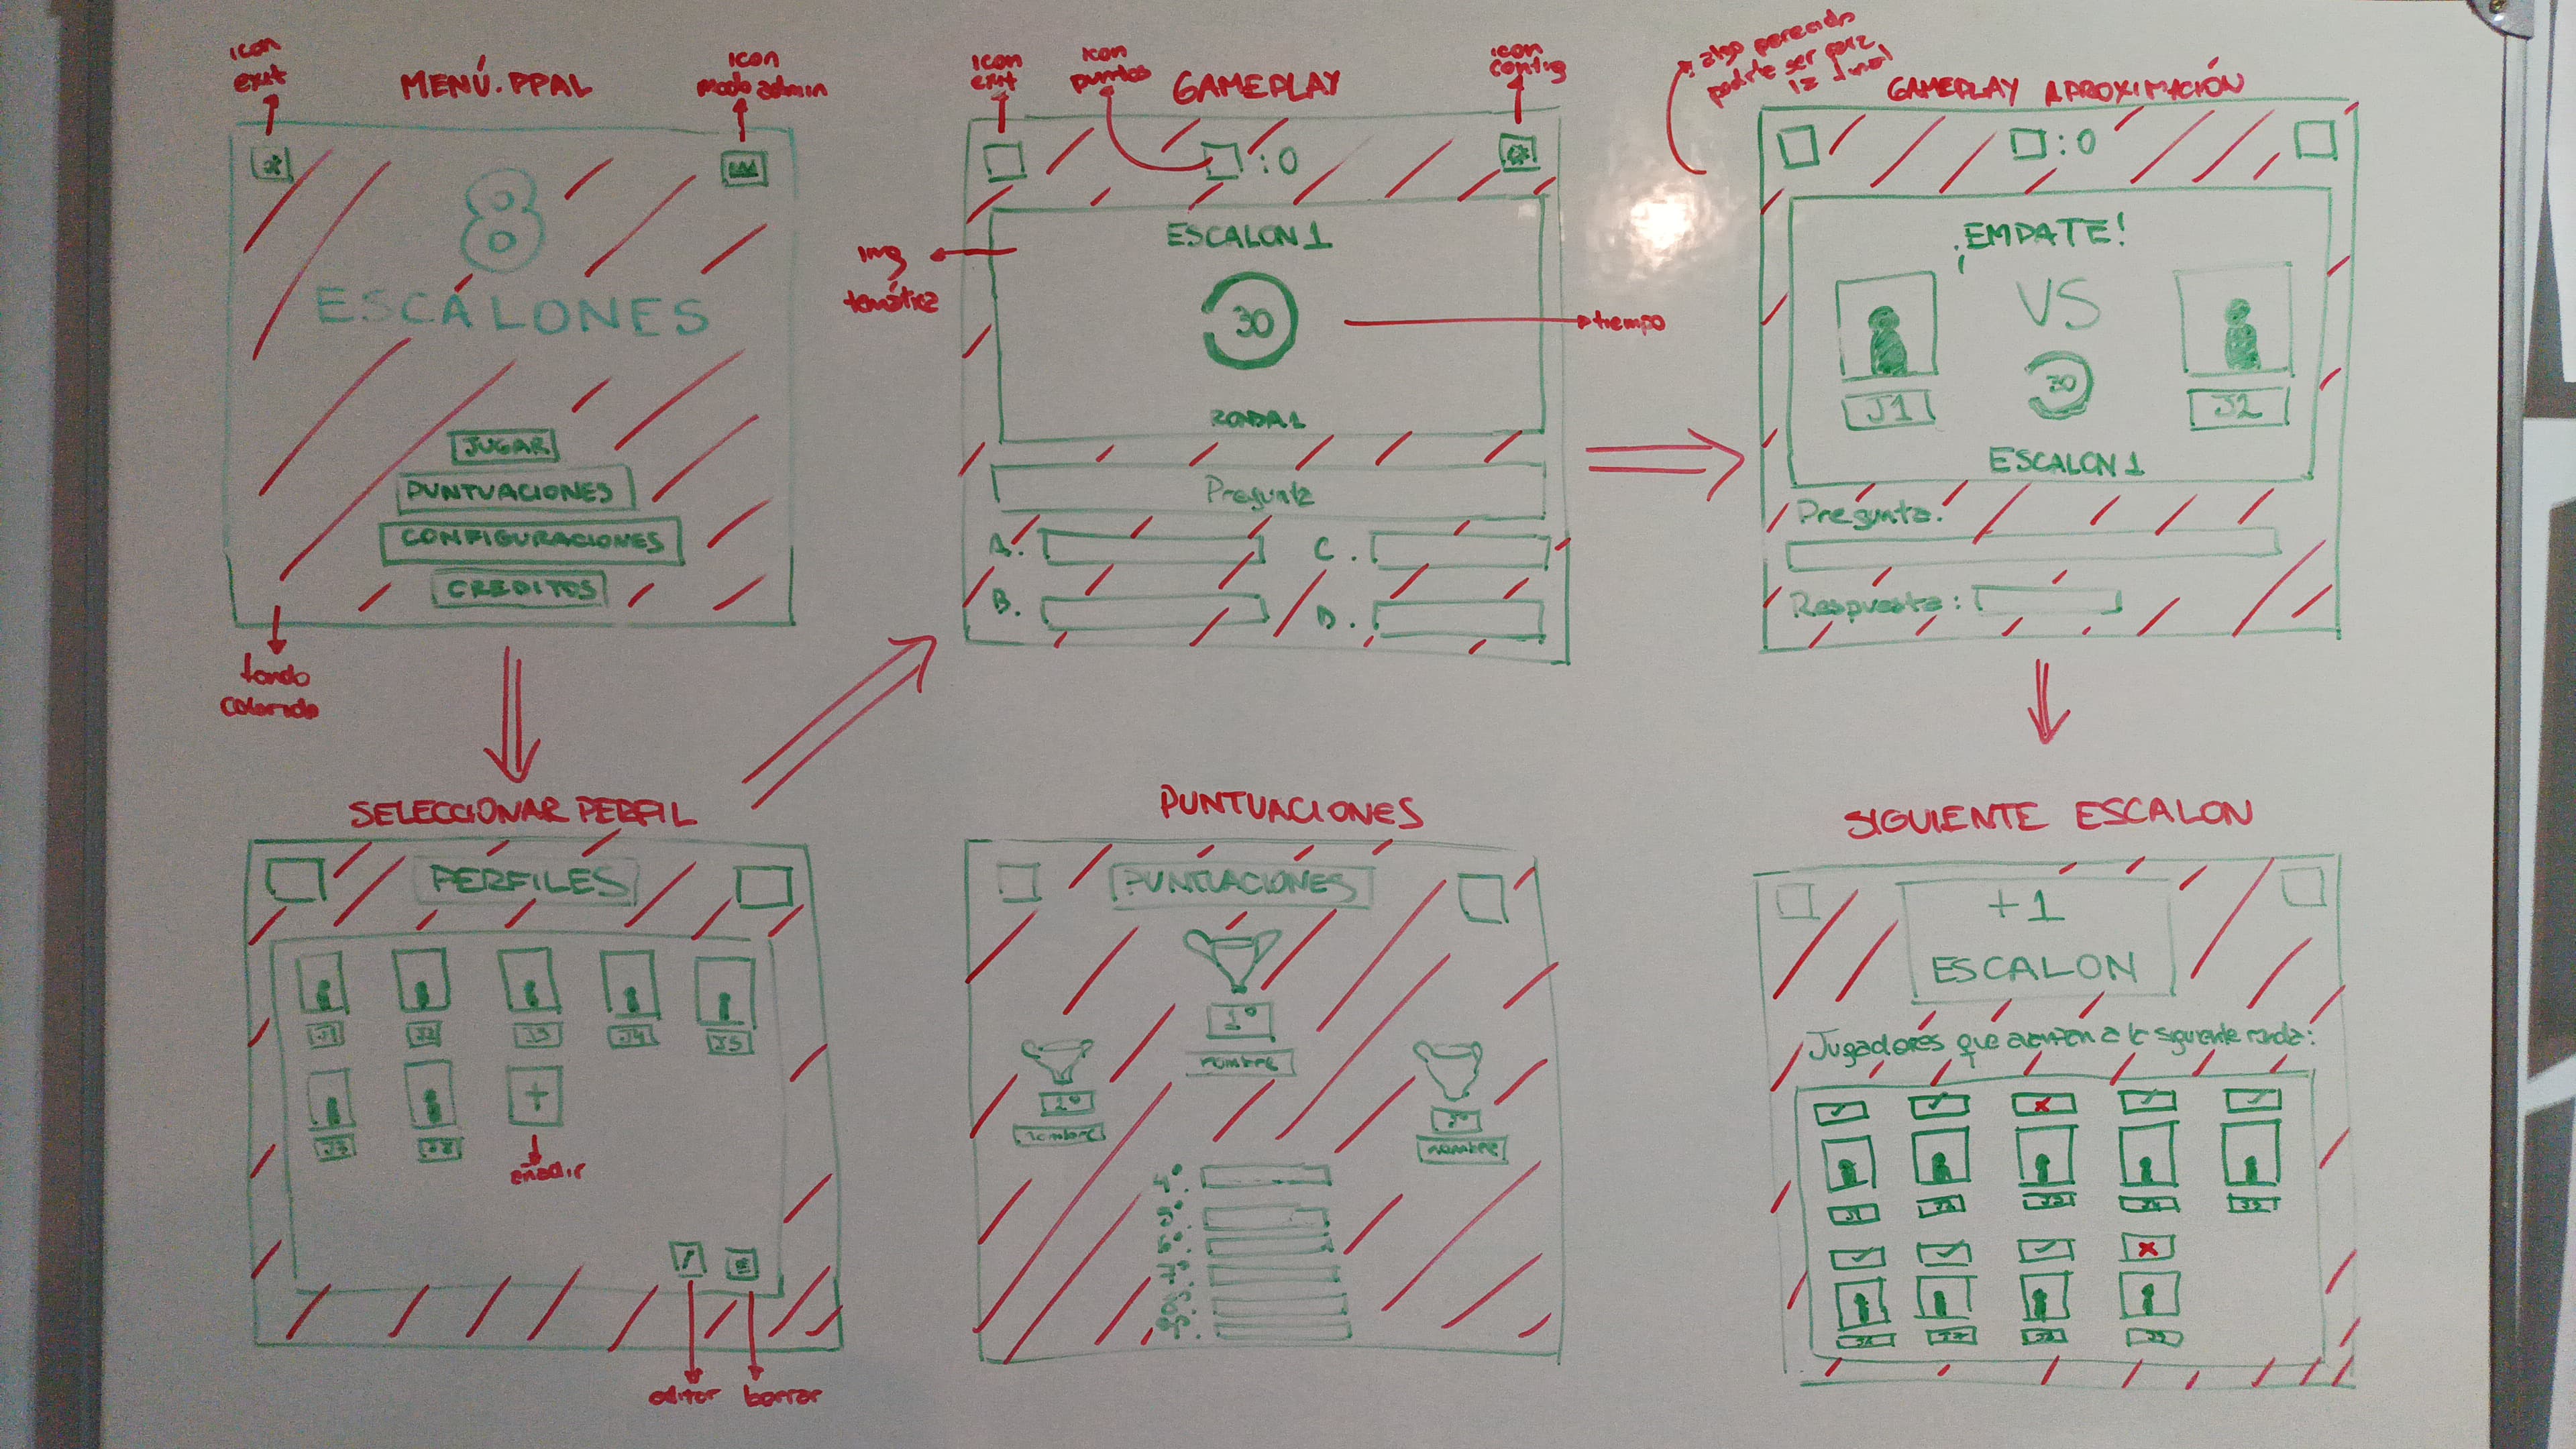 icon
exit
MENÚ.PPAL
icon
modo admin
8
ESCALONES
JUGAR
PUNTUACIONES
CONFIGURACIONES
CREDITOS
fondo
colorado
icon
exit
icon
puntos
GAMEPLAY
icon
config
: 0
ESCALON 1
30
RONDA 1
img
temática
tiempo
Pregunta
A.
C.
B.
D.
algo parecido
podría ser para
la final
GAMEPLAY APROXIMACIÓN
: 0
¡EMPATE!
VS
30
J1
J2
ESCALON 1
Pregunta.
Respuesta:
SELECCIONAR PERFIL
PERFILES
J1
J2
J3
J4
J5
+
añadir
editar
borrar
PUNTUACIONES
PUNTUACIONES
1°
nombre
2°
nombre
3°
nombre
4°
5°
6°
7°
8°
9°
SIGUIENTE ESCALON
+1
ESCALON
Jugadores que avanzan a la siguiente ronda:
J1
J2
J3
J4
J5
J6
J7
J8
J9